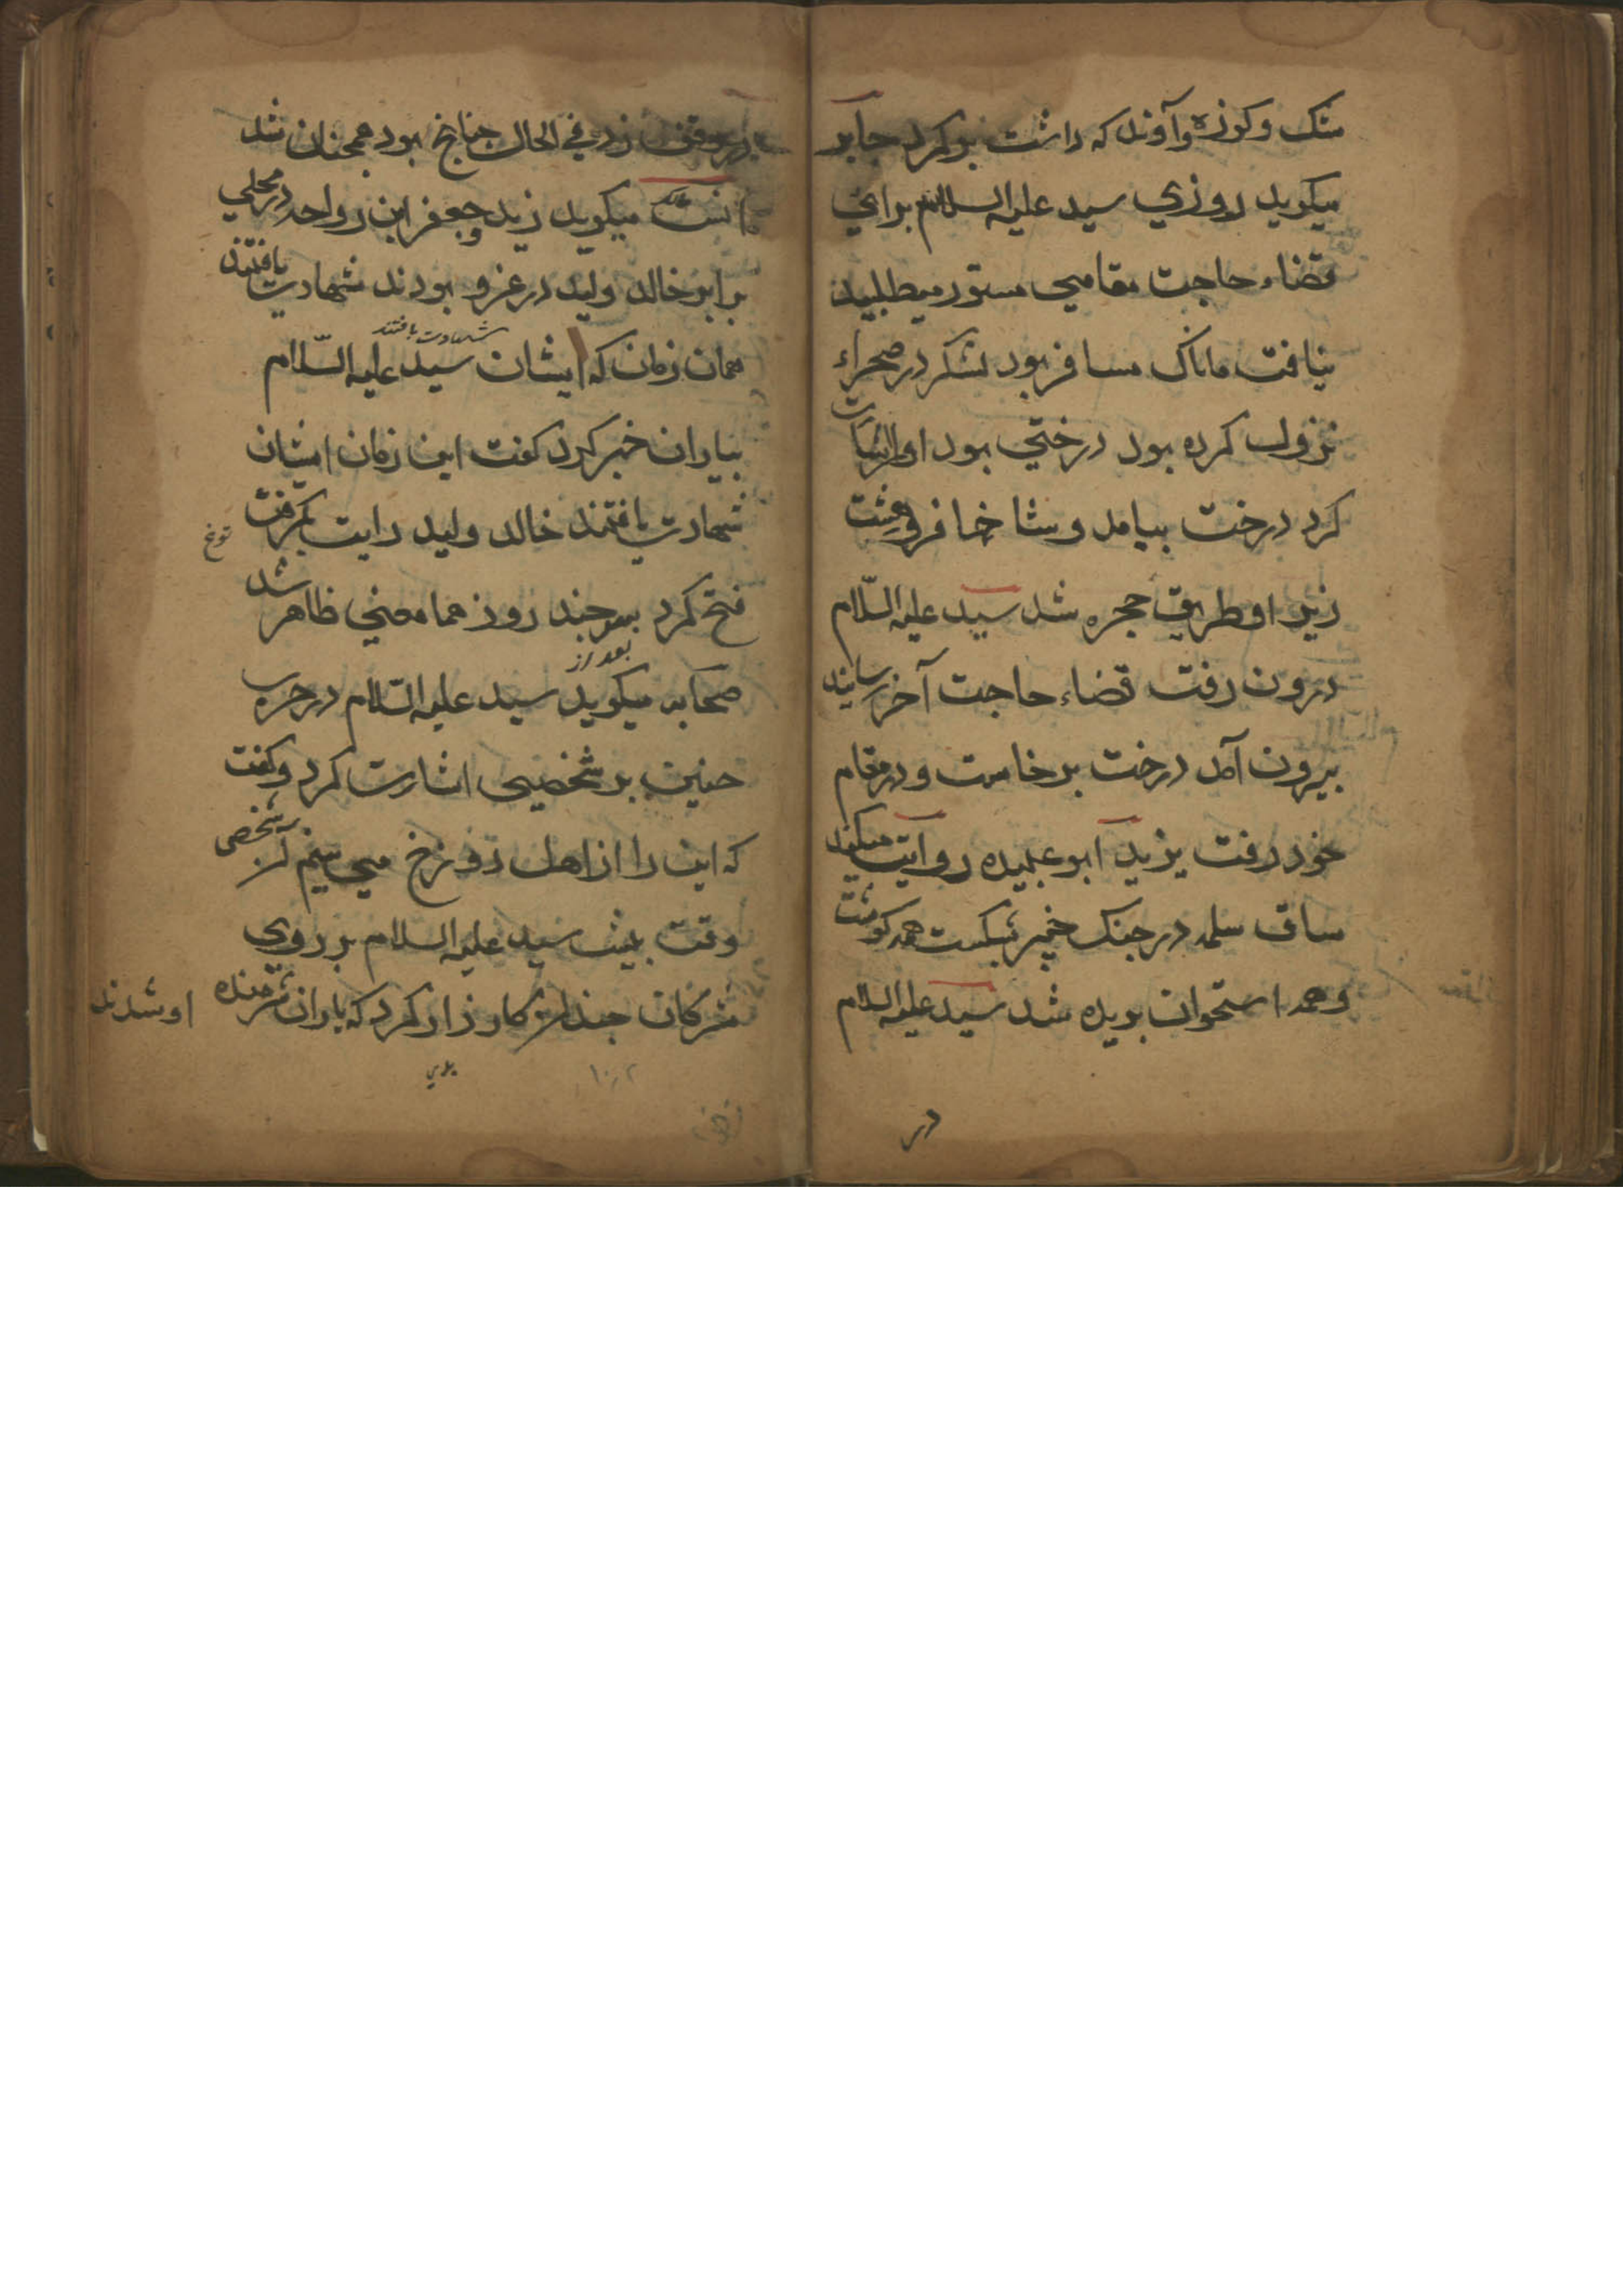 مشک و کوزه وآوند که داشت پر کرد جابر
میکوید روزي سید علیه السلام براي
قضاء حاجت مقامي مستور میطلبید
نیافت ماناک مسافر بود لشکر در صحراء
نزول کرده بود درختي بود او را اشارت
کرد درخت بیامد و شاخها فرو هشت
زیر او طریق حجره شد سید علیه السّلام
درون رفت قضاء حاجت آخر رسانید
بیرون آمد درخت برخاست و در مقام
خود رفت یزید ابو عبیده روایت میکند
ساق سلمه در جنک خیبر بشکست همه کوشت
و همه استخوان بریده شد سید علیه السلام
در
زد في الحال جناخ بود همجنان شد
انس مالک میکوید زید و جعفر ابن رواحه در محلي
برابر خالد ولید در غزو بودند شهادت یافتند
همان زمان که ایشان شهادت یافتند سید علیه السّلام
بیاران خبر کرد کفت این زمان ایشان
شهادت یافتند خالد ولید رایت بکرفت
فتح کرد بعد از چند روز هما معني ظاهر شد
صحابه میکوید سید علیه السّلام در حرب
حنین بر شخصیي اشارت کرد وکفت
که این را از اهل دوزخ مي بینم آن شخصی
وقت پیش سید علیه السلام بر روي
مشرکان چندان کارزار کرد که یاران شرمنده او شدند
۱۰۲